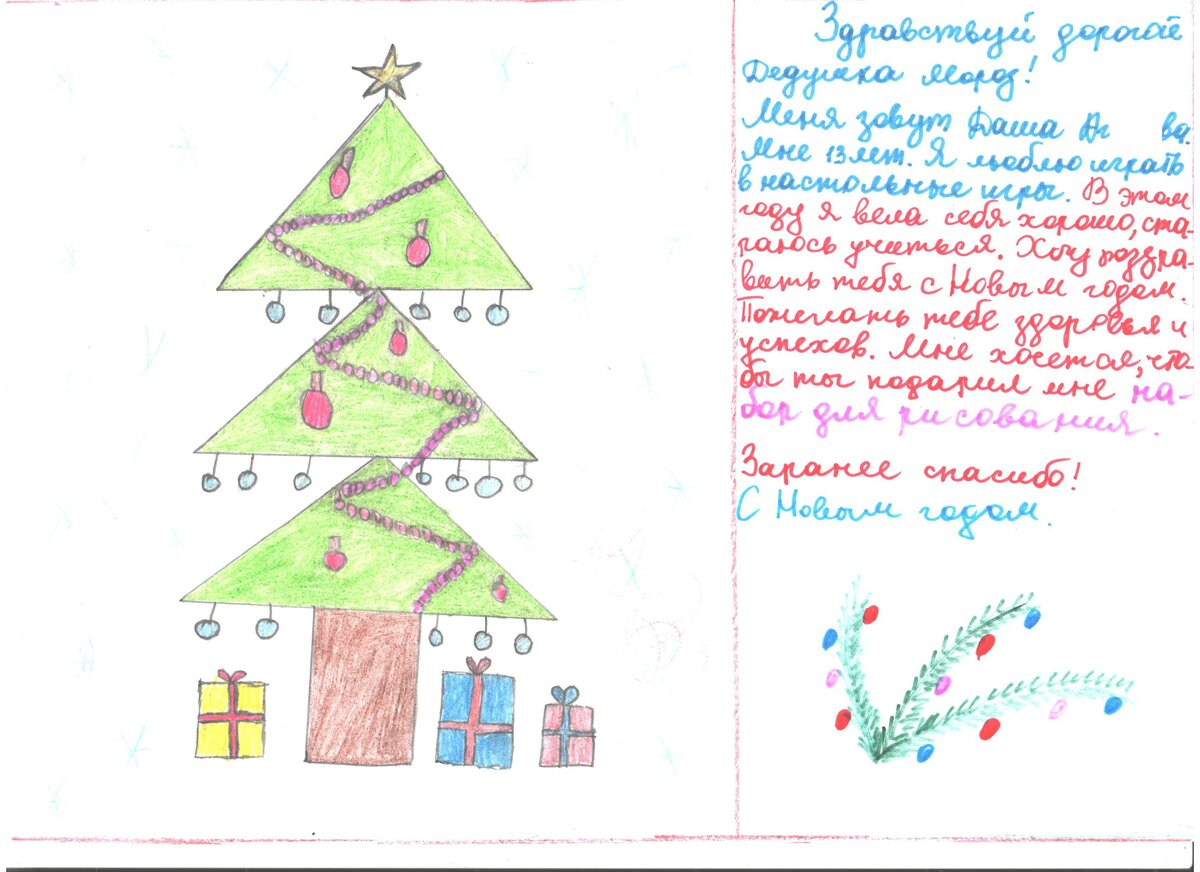 Здравствуй дорогой
Дедушка Мороз!
Меня зовут Даша Аг ва.
Мне 13 лет. Я люблю играть
в настольные игры. В этом
году я вела себя хорошо, ста-
раюсь учиться. Хочу поздра-
вить тебя с Новым годом.
Пожелать тебе здоровья и
успехов. Мне хочется, что-
бы ты подарил мне на-
бор для рисования.
Заранее спасибо!
С Новым годом.